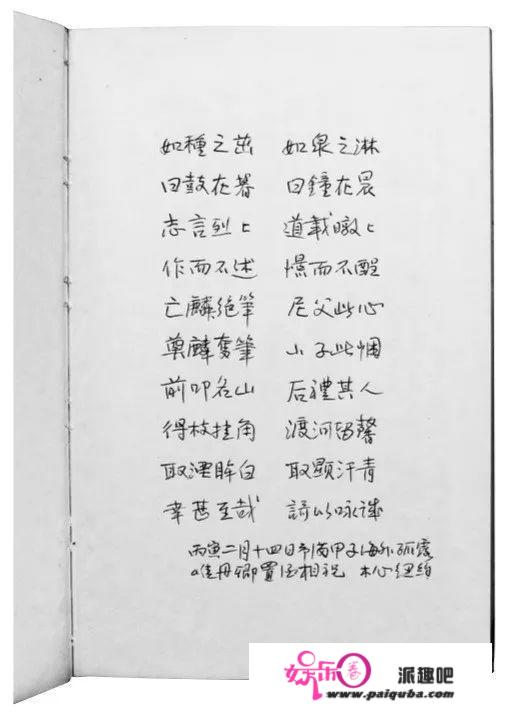 如種之茁 如泉之淋
曰鼓在暮 曰鐘在晨
志言烈〻 道載暾〻
作而不述 憬而不酲
亡麟絕筆 尼父此心
萬麟奮筆 小子此悃
前叩名山 后禮其人
得枝挂角 渡河留馨
取浬眸白 取顥汗青
幸甚至哉 詩以咏誠
丙寅二月十四日市滿甲子海外孤露
唯丹卿置酒相祝 木心紐約
娱乐圈
派趣吧
www.paiquba.com